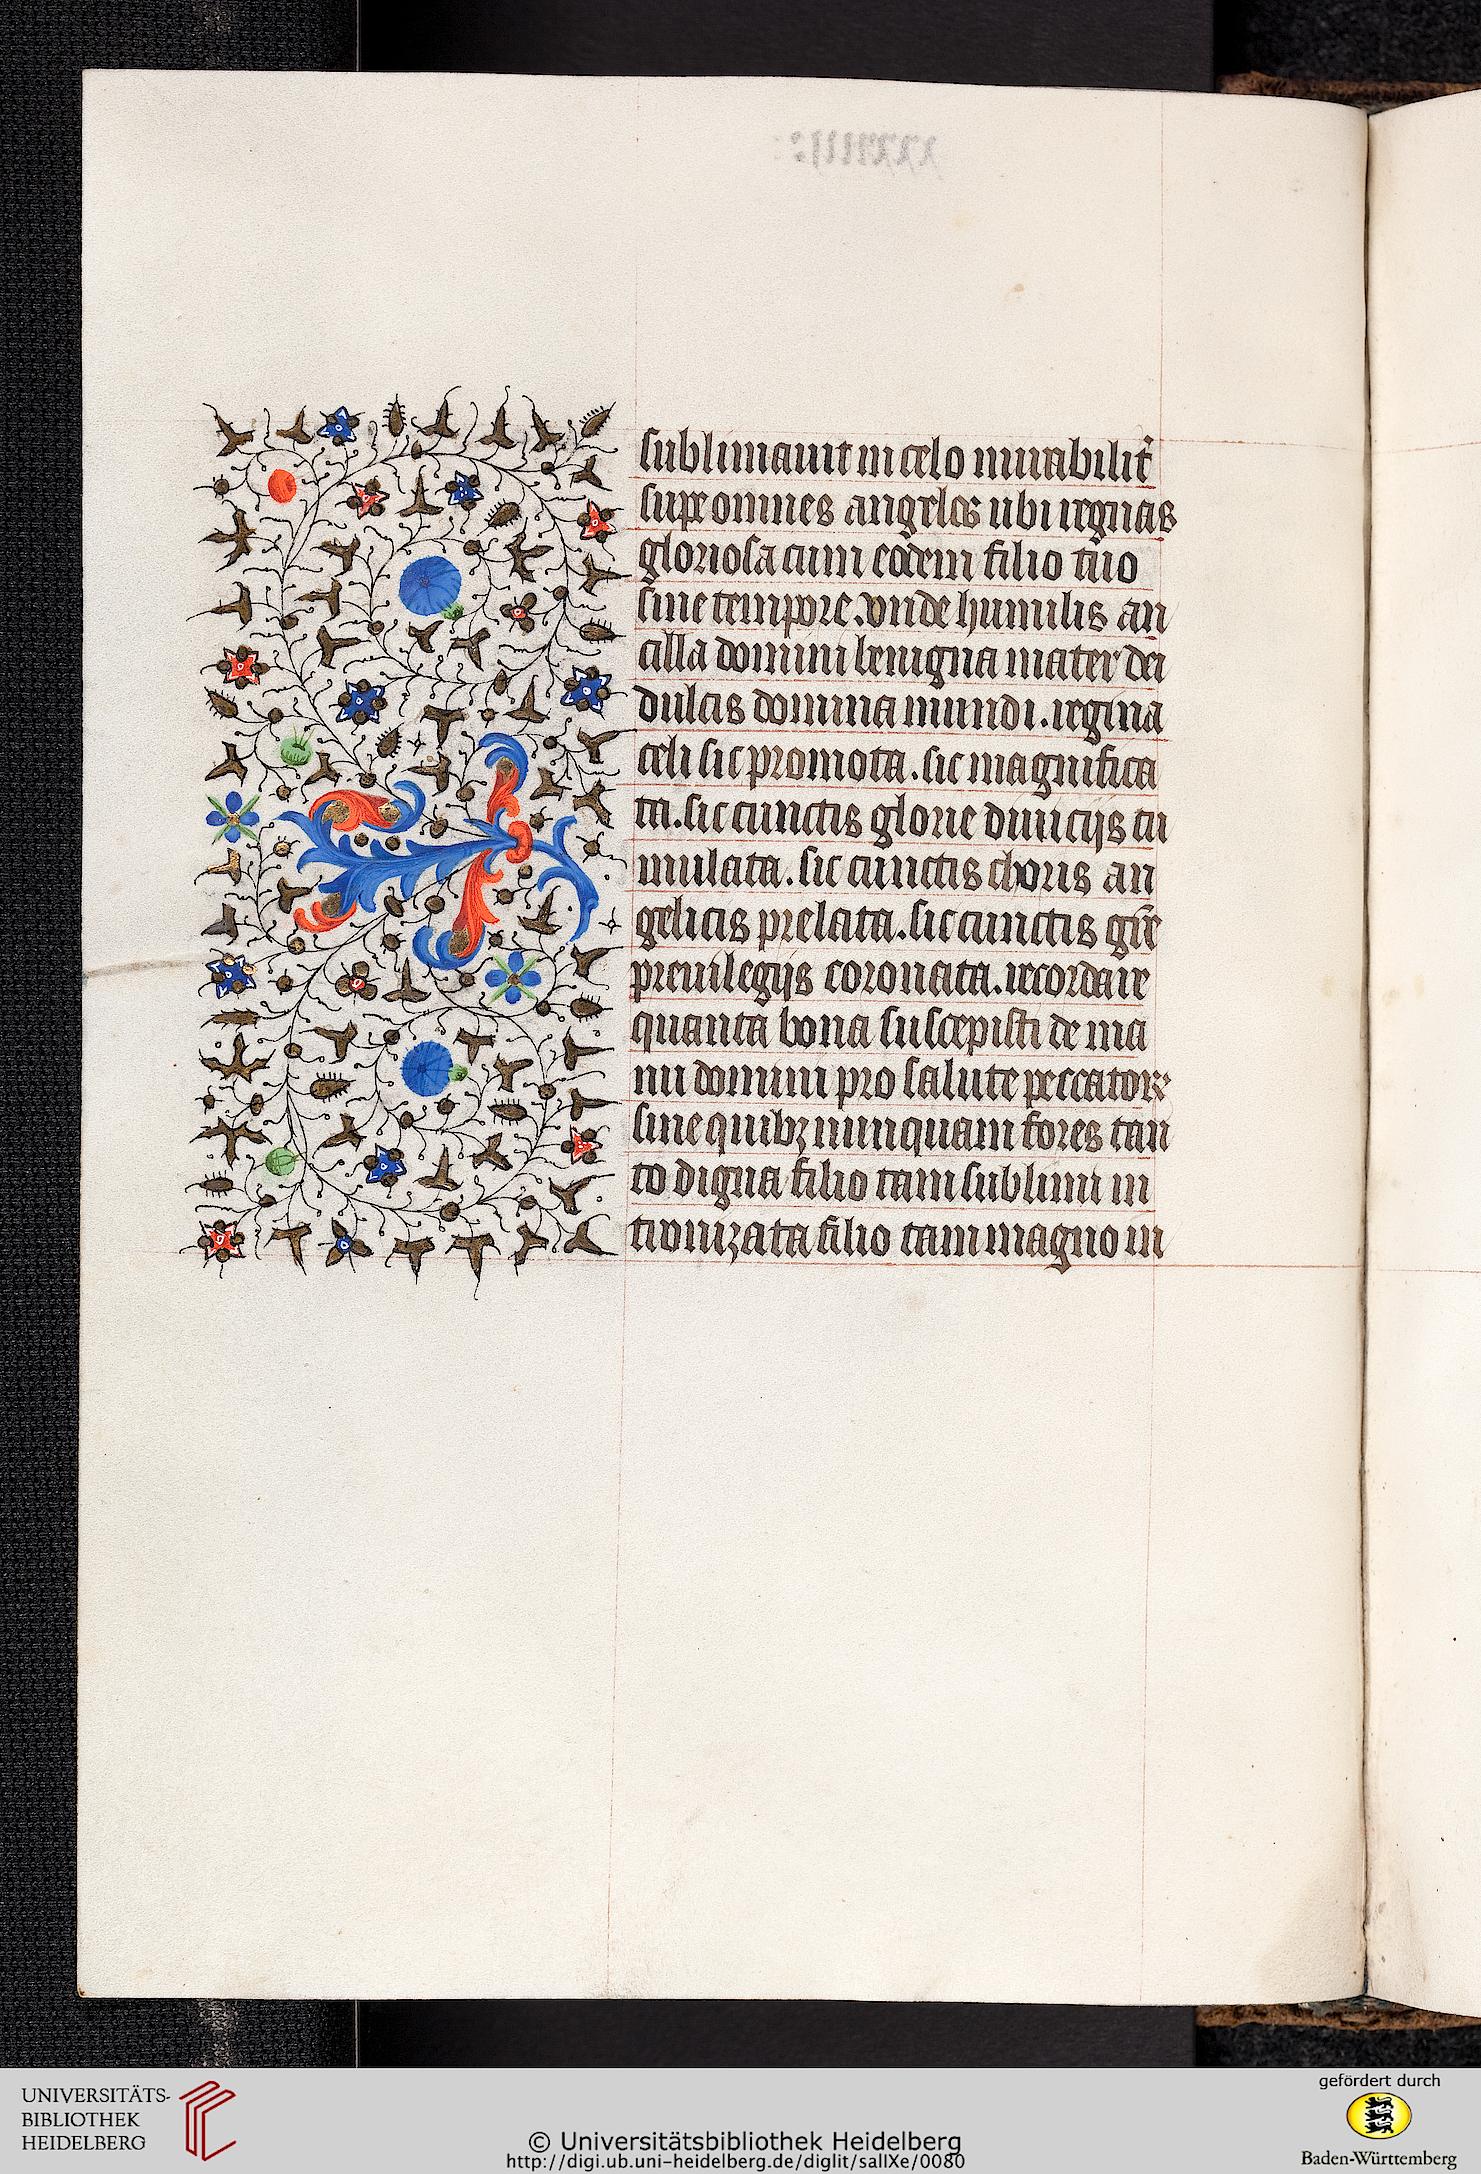 xxxiiij:
sublimauit in celo mirabilit᷑
sup̲ omnes angelos ubi regnas
gloriosa cum eodem filio tuo
sine tempore. vnde humilis an
cilla domini benigna mater dei
dulcis domina mundi. regina
celi sic promota. sic magnifica
ta. sic cunctis glorie diuicijs cu
mulata. sic cunctis choris an
gelicis prelata. sic cunctis gr̄e
preuilegijs coronata. recordare
quanta bona suscepisti de ma
nu domini pro salute peccatorꝝ
sine quibꝫ nunquam fores tan
to digna filio tam sublimi in
tronizata filio tam magno in
UNIVERSITÄTS-
BIBLIOTHEK
HEIDELBERG
© Universitätsbibliothek Heidelberg
http://digi.ub.uni-heidelberg.de/diglit/salIXe/0080
gefördert durch
Baden-Württemberg